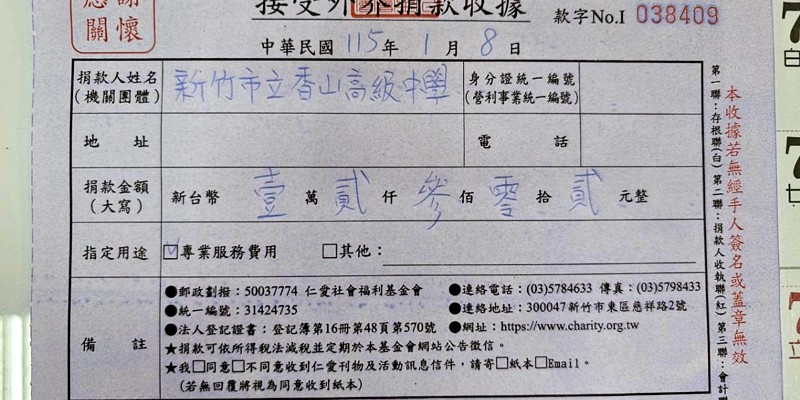 感謝
關懷
接受外界捐款收據
款字No.I 038409
中華民國 115 年 1 月 8 日
捐款人姓名
(機關團體)
新竹市立香山高級中學
身分證統一編號
(營利事業統一編號)
地 址
電 話
捐款金額
(大寫)
新台幣 壹 萬 貳 仟 參 佰 零 拾 貳 元整
指定用途
☑專業服務費用 □其他：
備 註
●郵政劃撥：50037774 仁愛社會福利基金會
●連絡電話：(03)5784633 傳真：(03)5798433
●統一編號：31424735
●連絡地址：300047新竹市東區慈祥路2號
●法人登記證書：登記簿第16冊第48頁第570號
●網址：https://www.charity.org.tw
★捐款可依所得稅法減稅並定期於本基金會網站公告徵信。
★我□同意□不同意收到仁愛刊物及活動訊息信件，請寄□紙本□Email。
(若無回覆將視為同意收到紙本)
第一聯：存根聯(白) 第二聯：捐款人收執聯(紅) 第三聯：會計聯
本收據若無經手人簽名或蓋章無效